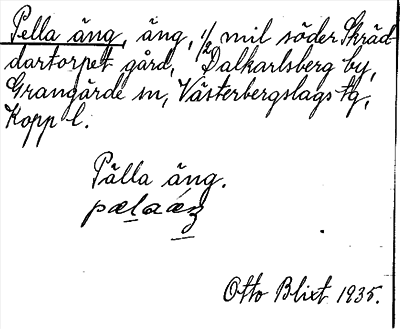 Pella äng, äng, 1/2 mil söder Skräd-
dartorpet gård, Dalkarlsberg by,
Grangärde sn, Västerbergslags tg,
Kopp l.
Pälla äng.
Otto Blixt 1935.